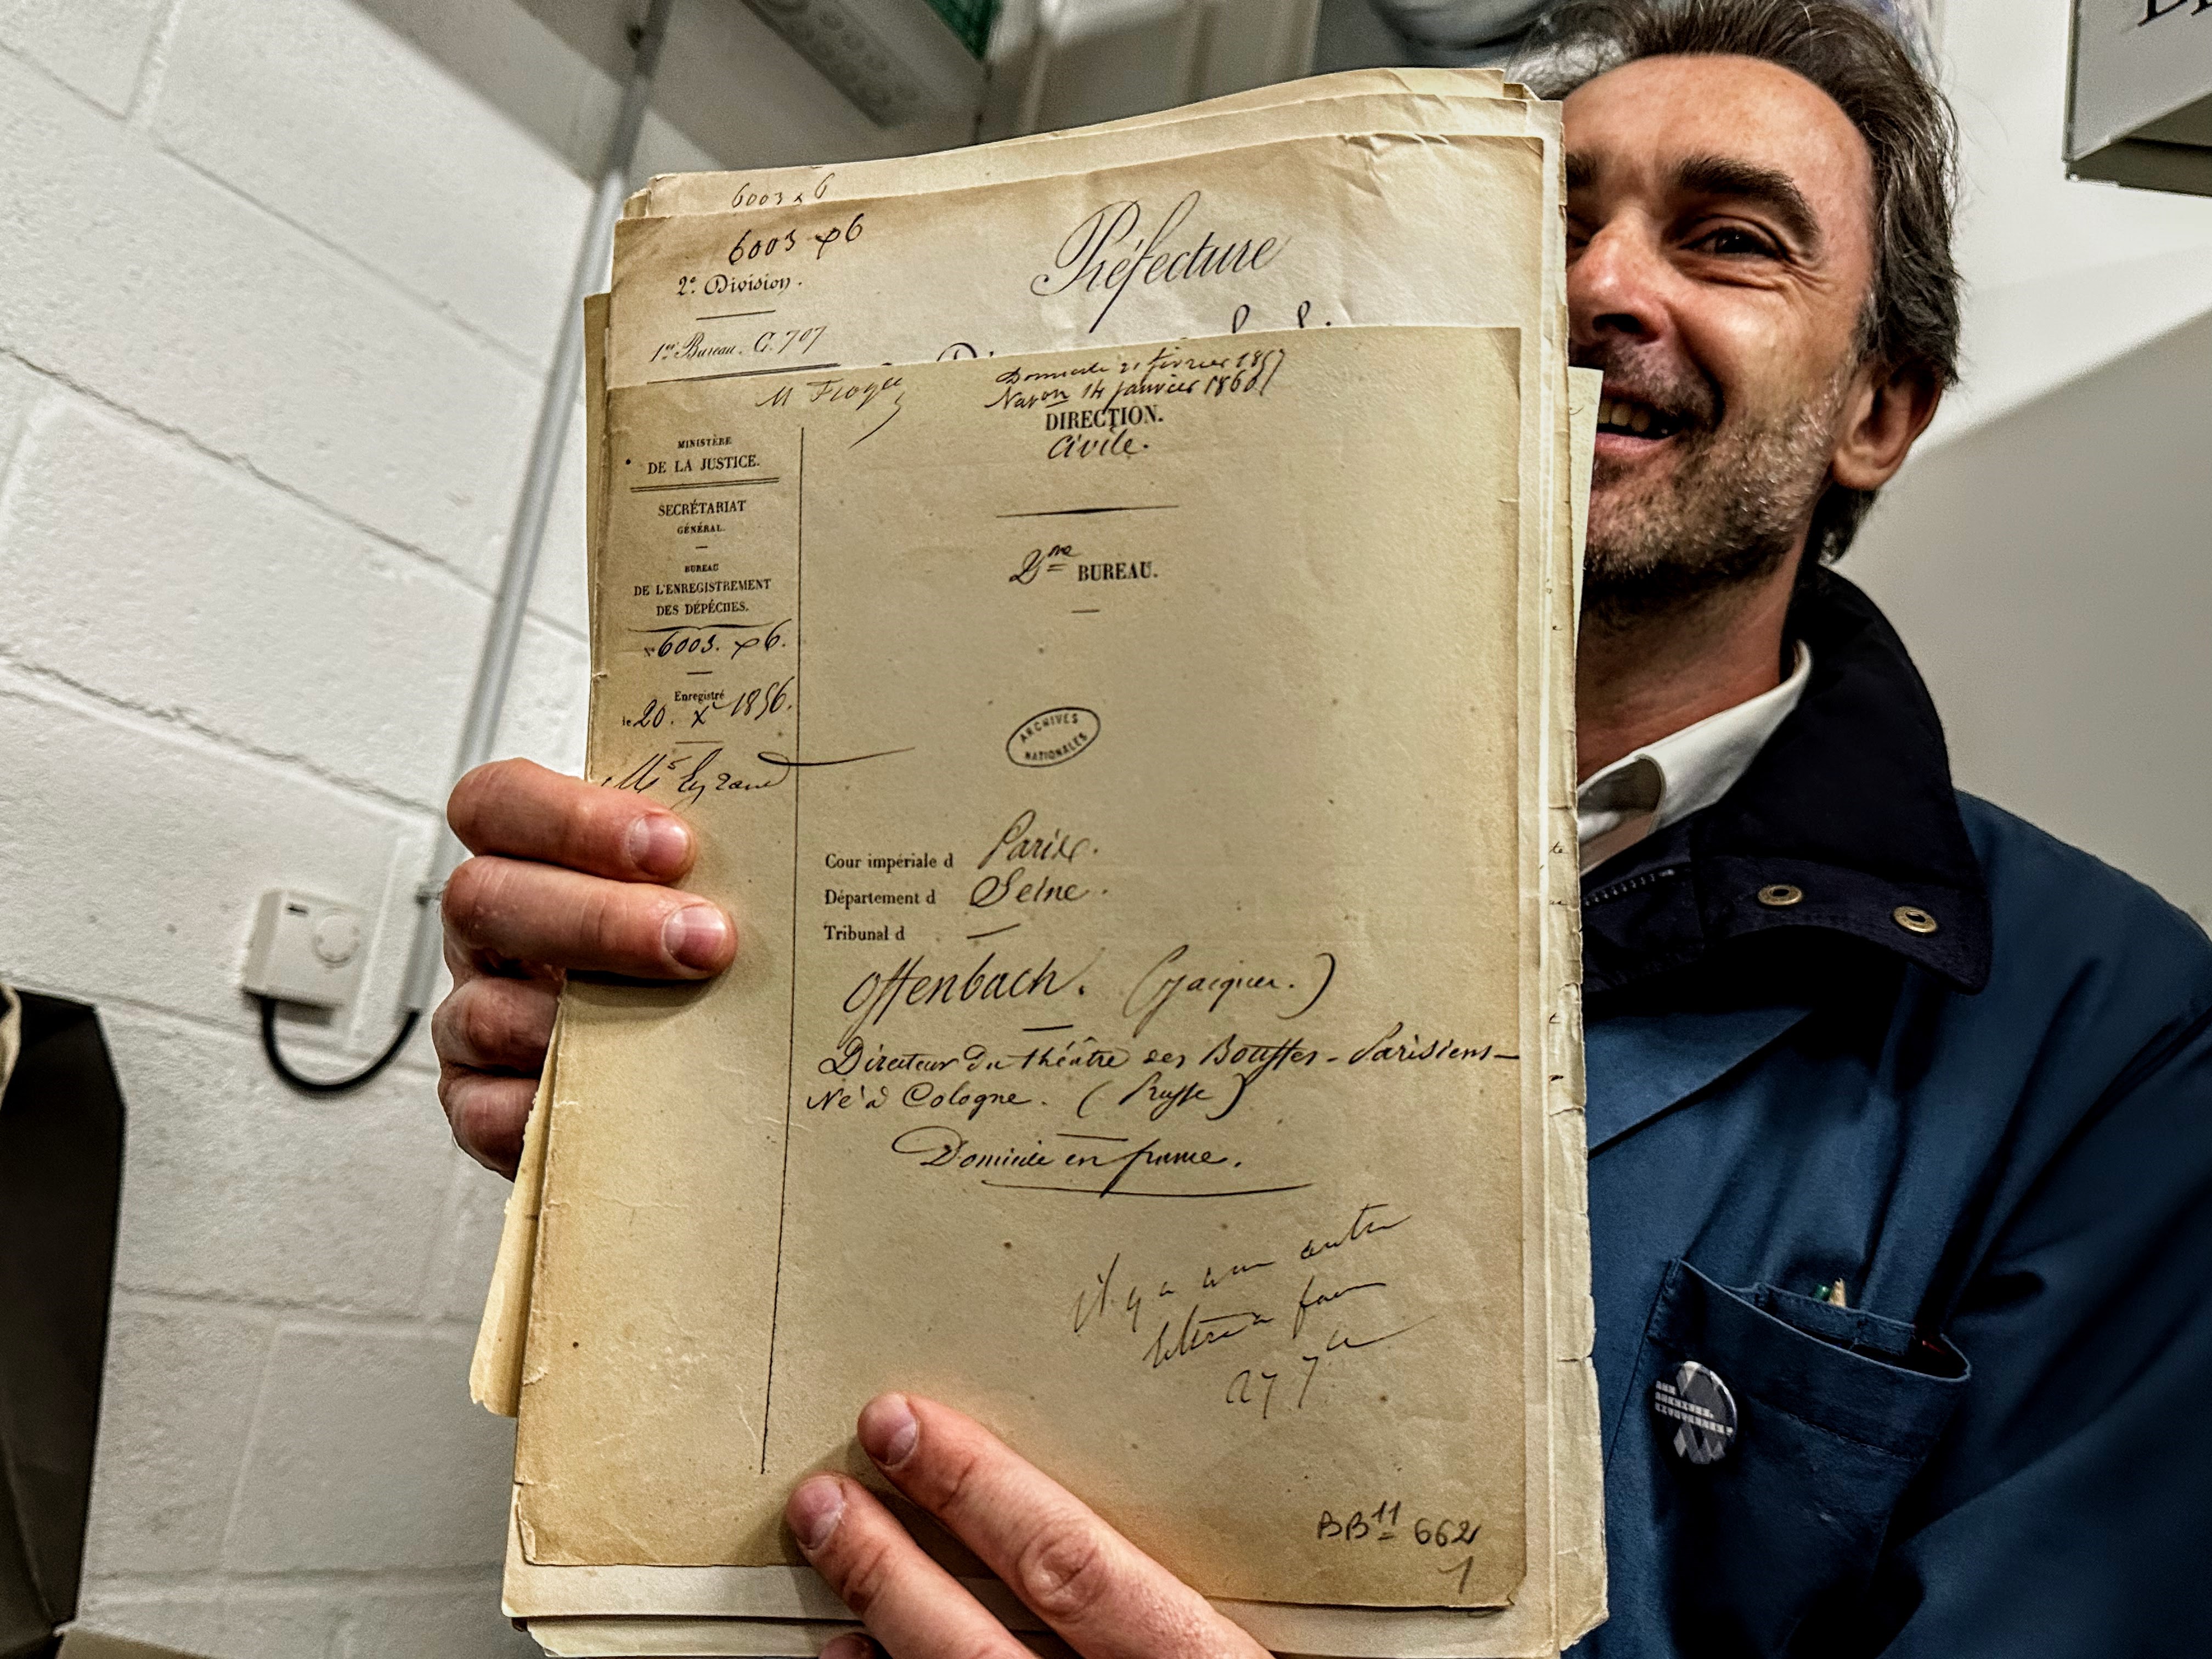 6003 x 6
6003 x6
2e. Division.
1er Bureau. G. 707
Préfecture
Domicile 21 février 1857
Naton 14 janvier 1860
DIRECTION.
Civile.
MINISTÈRE
DE LA JUSTICE.
SECRÉTARIAT
GÉNÉRAL.
BUREAU
DE L'ENREGISTREMENT
DES DÉPÊCHES.
No 6003. x6.
Enregistré
le 20. Xe 1856.
2me BUREAU.
ARCHIVES
NATIONALES
Cour impériale d Paris.
Département d Seine.
Tribunal d —
Offenbach. (Jacques.)
Directeur du théâtre des Bouffes-Parisiens—
Né à Cologne. (Prusse)
Domicile en france.
il y a une autre
lettre a
BB11 662
1